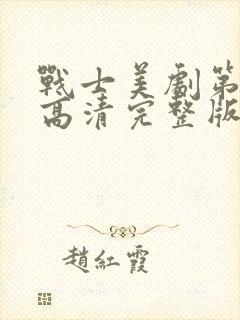 戰士美劇第
高清完整版
趙紅霞